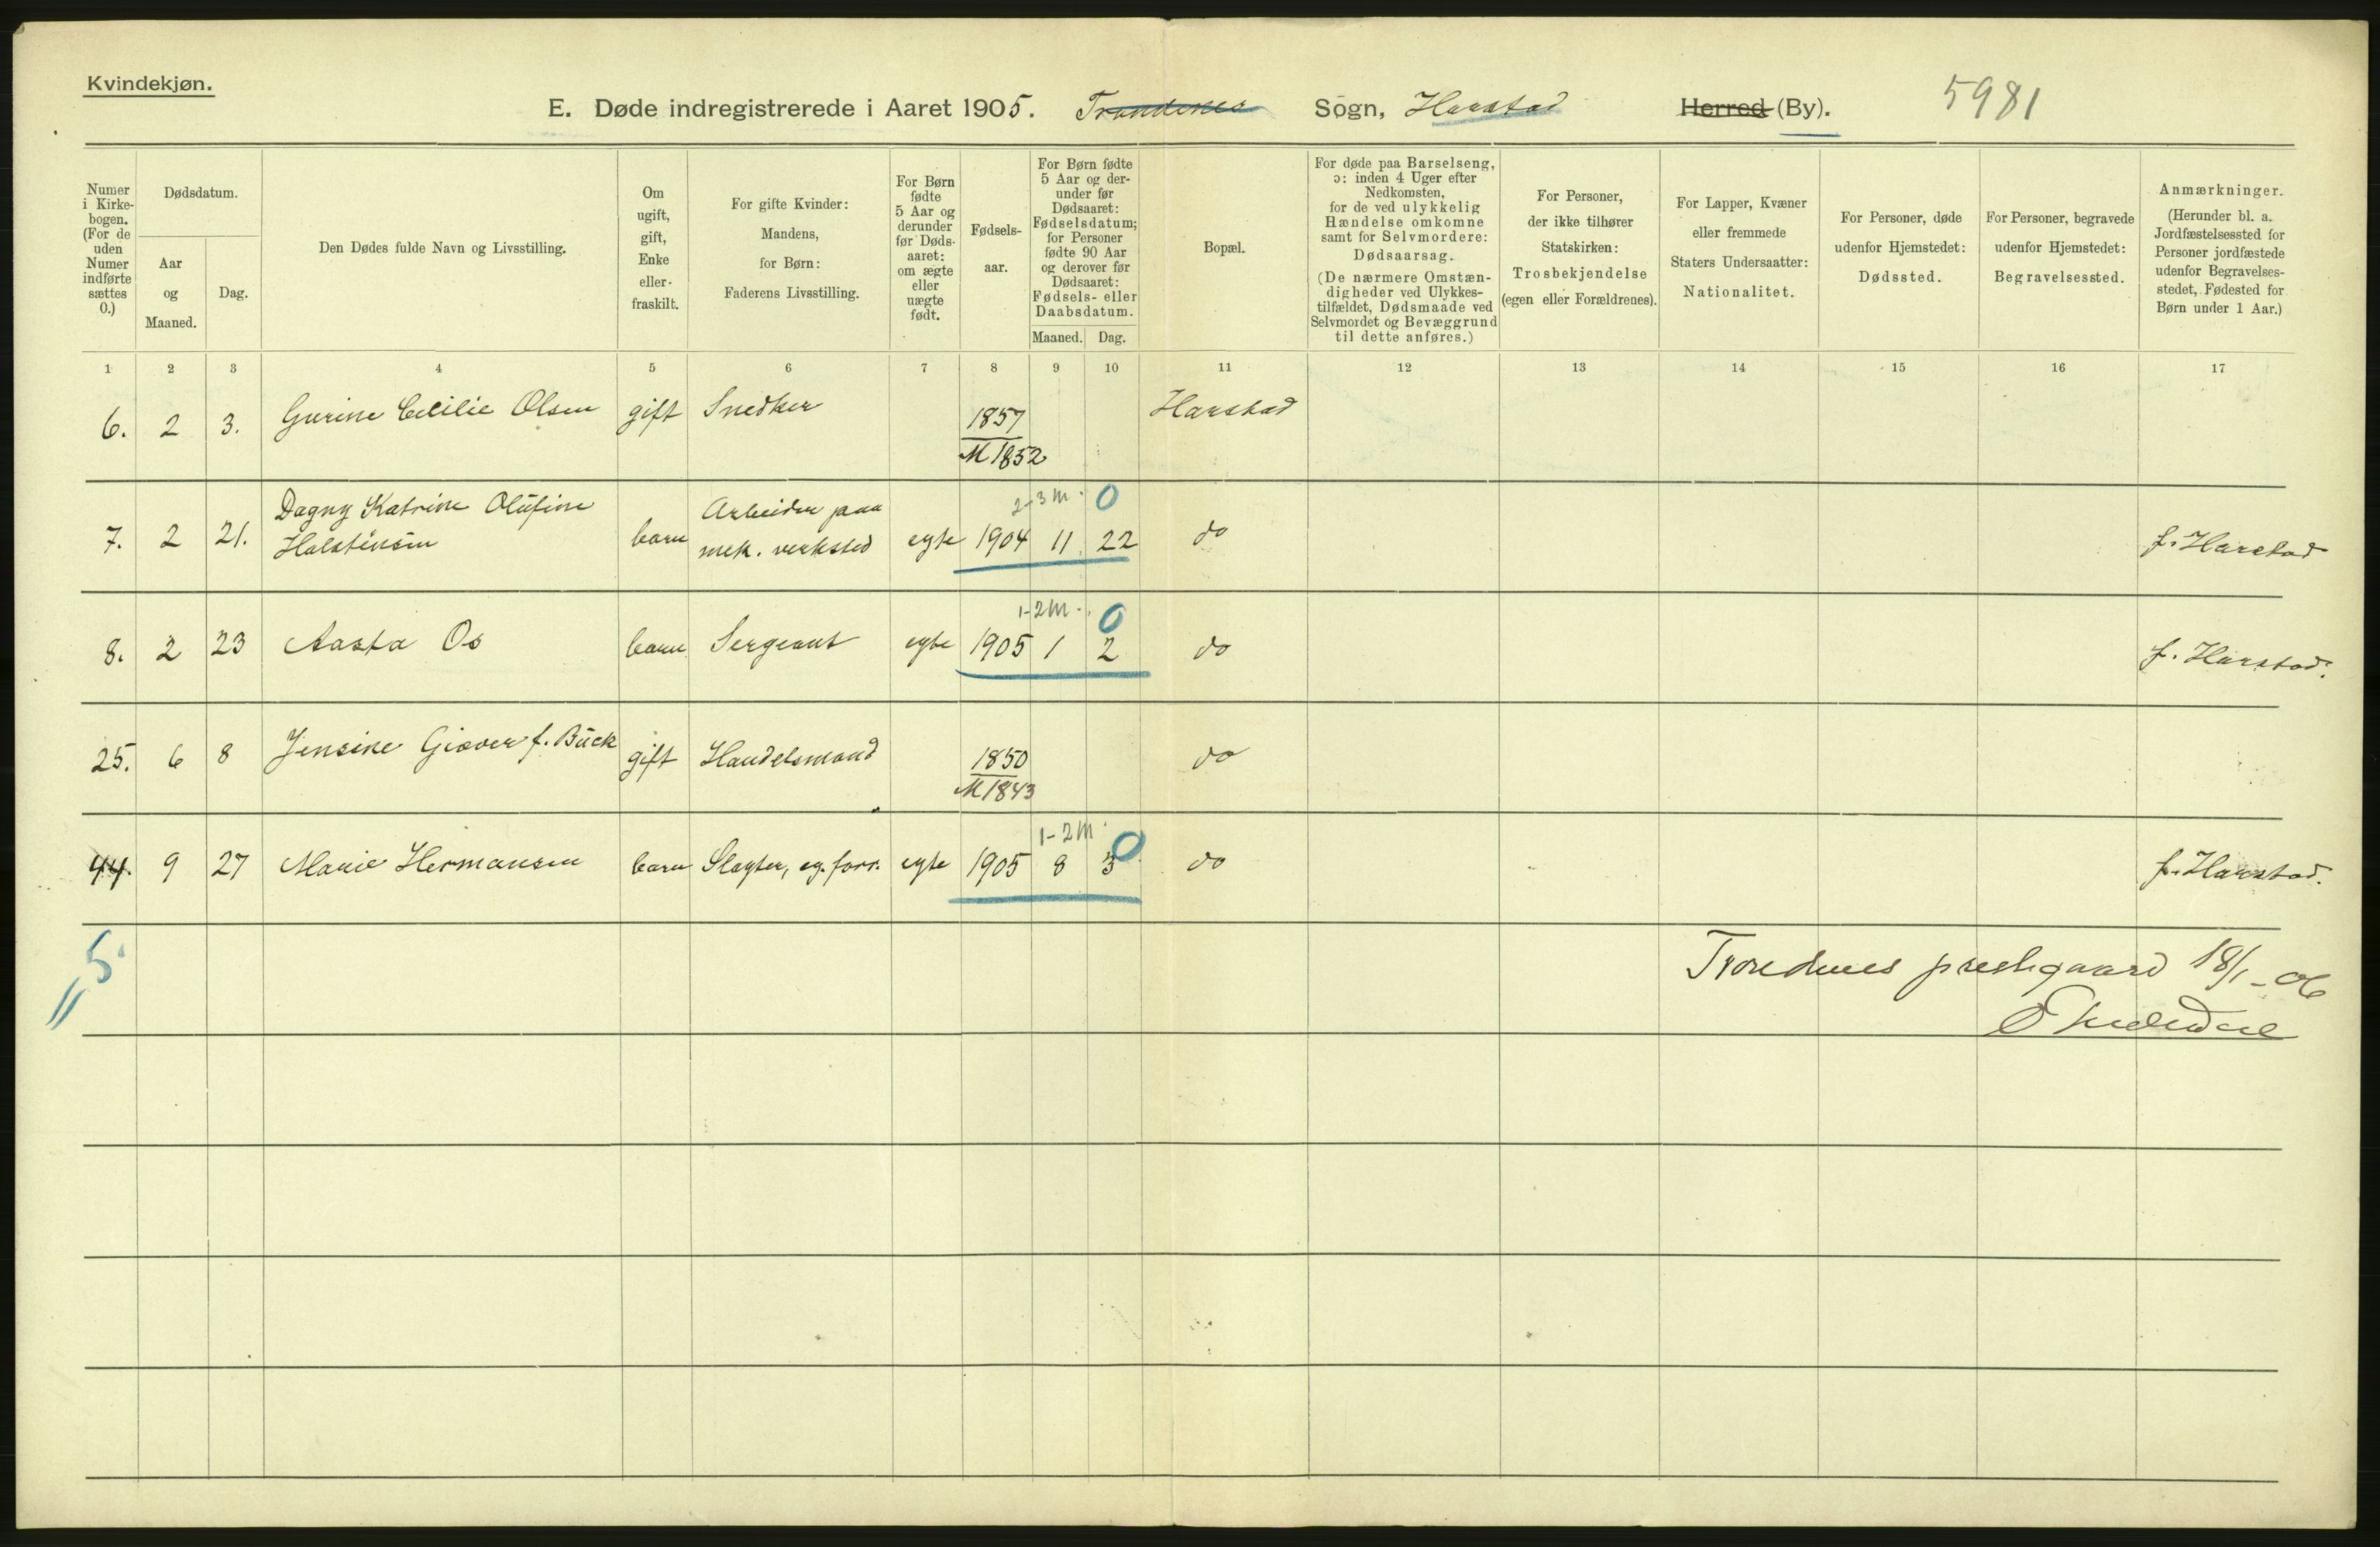 Kvindekjøn.
E. Døde indregistrerede i Aaret 1905. Trondenes Sogn, Harstad Herred (By). 5981
Numer i Kirkebogen. (For de uden Numer indførte sættes 0.)
Dødsdatum.
Aar og Maaned.
Dag.
Den Dødes fulde Navn og Livsstilling.
Om ugift, gift, Enke eller fraskilt.
For gifte Kvinder: Mandens, for Børn: Faderens Livsstilling.
For Børn fødte 5 Aar og derunder før Dødsaaret: om ægte eller uægte født.
Fødselsaar.
For Børn fødte 5 Aar og derunder før Dødsaaret: Fødselsdatum; for Personer fødte 90 Aar og derover før Dødsaaret: Fødsels- eller Daabsdatum.
Maaned. Dag.
Bopæl.
For døde paa Barselseng, ɔ: inden 4 Uger efter Nedkomsten, for de ved ulykkelig Hændelse omkomne samt for Selvmordere: Dødsaarsag. (De nærmere Omstændigheder ved Ulykkestilfældet, Dødsmaade ved Selvmordet og Bevæggrund til dette anføres.)
For Personer, der ikke tilhører Statskirken: Trosbekjendelse (egen eller Forældrenes).
For Lapper, Kvæner eller fremmede Staters Undersaatter: Nationalitet.
For Personer, døde udenfor Hjemstedet: Dødssted.
For Personer, begravede udenfor Hjemstedet: Begravelsessted.
Anmærkninger. (Herunder bl. a. Jordfæstelsessted for Personer jordfæstede udenfor Begravelsesstedet, Fødested for Børn under 1 Aar.)
1 2 3 4 5 6 7 8 9 10 11 12 13 14 15 16 17
6. 2 3. Gurine Cecilie Olsen gift Snedker 1857 Harstad
M 1852
2-3 m. 0
Dagny Katrine Olufine Arbeider paa
7. 2 21. Holstensen barn mek. verksted egte 1904 11 22 do f. Harstad
1-2 m. 0
8. 2 23 Aasta Os barn Sergeant egte 1905 1 2 do f. Harstad.
25. 6 8 Jensine Giæver f. Buck gift Handelsmand 1850 do
M 1843
1-2 m. 0
44. 9 27 Marie Hermansen barn Slagter, eg. forr. egte 1905 8 3 do f. Harstad.
5
Trondenes prestegaard 18/1-06